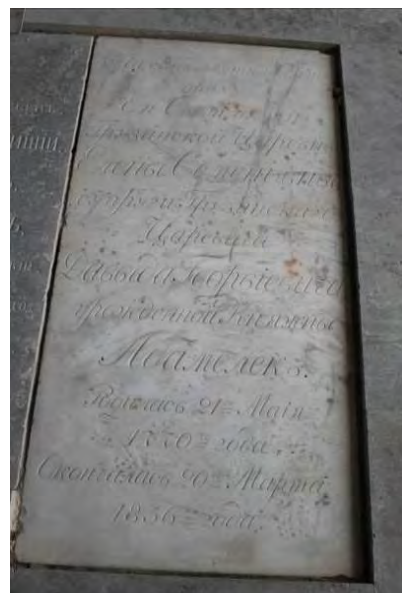 Ея Свѣтлости
Грузинской Царевны
Елены Семеновны
супруги Грузинскаго
Царевича
Давыда Георгіевича
урожденной Княжны
Абамелекъ.
Родилась 21го Маія
1770го года
Скончалась 20го Марта
1836го года.